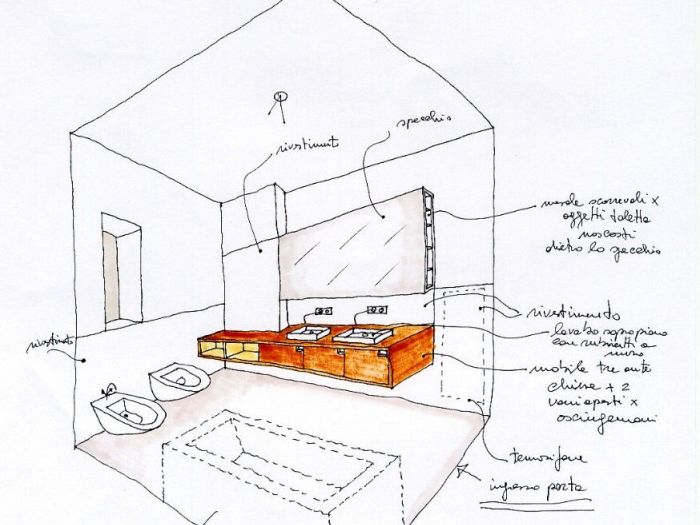 specchio
rivestimento
mensole scorrevoli x
oggetti toletta
nascosti
dietro lo specchio
rivestimento
lavabo sopra piano
con rubinetti a
muro
mobile tre ante
chiuse + 2
vani aperti x
asciugamani
termosifone
ingresso porta